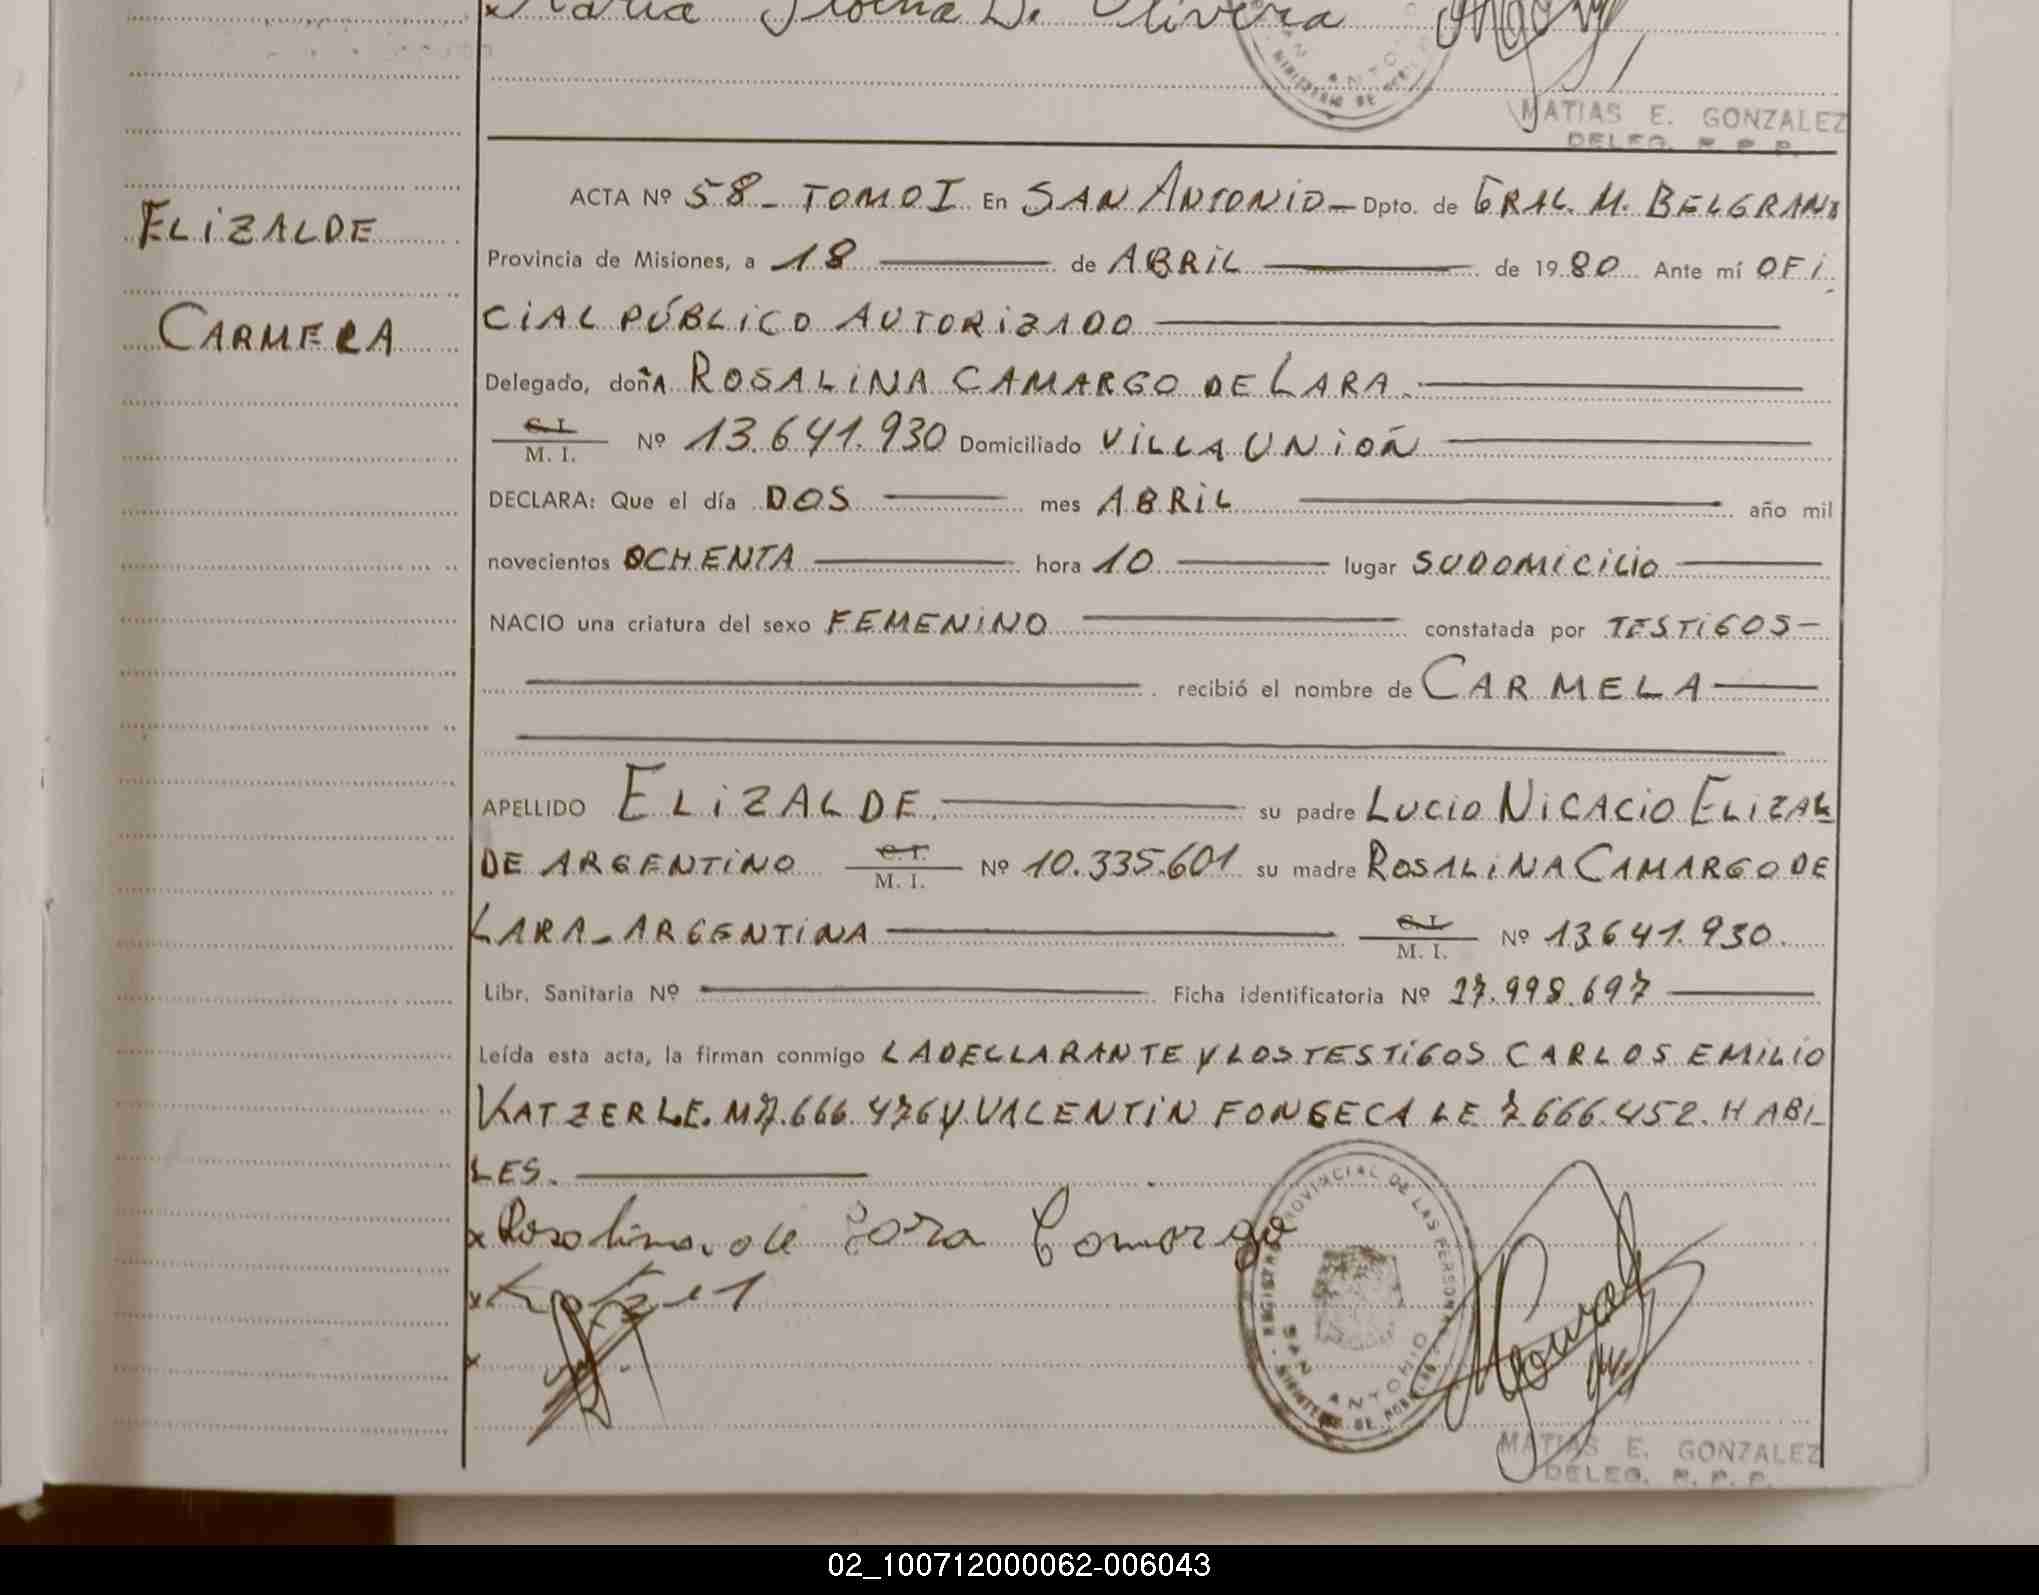 Maria De Olivera
SAN ANTONIO
MINISTERIO DE
MATIAS E. GONZALEZ
DELEG. R. P. P.
ELIZALDE
CARMELA
ACTA Nº 58_ TOMO I En SAN ANTONIO_ Dpto. de GRAL. M. BELGRANO
Provincia de Misiones, a 18 de ABRIL de 1980 Ante mí OFI
CIAL PÚBLICO AUTORIZADO
Delegado, doñA ROSALINA CAMARGO DE LARA.
C.I. M. I. Nº 13.641.930 Domiciliado VILLA UNIÓN
DECLARA: Que el día DOS mes ABRIL año mil
novecientos OCHENTA hora 10 lugar SU DOMICILIO
NACIO una criatura del sexo FEMENINO constatada por TESTIGOS—
recibió el nombre de CARMELA
APELLIDO ELIZALDE. su padre LUCIO NICACIO ELIZAL
DE ARGENTINO C.I. M. I. Nº 10.335.601 su madre ROSALINA CAMARGO DE
LARA_ARGENTINA C.I. M. I. Nº 13641.930.
Libr. Sanitaria Nº Ficha identificatoria Nº 27.998.697
Leída esta acta, la firman conmigo LA DECLLARANTE Y LOS TESTIGOS CARLOS EMILIO
KATZER L.E. M7.666.476 Y VALENTIN FONSECA LE 7666.452. HABI_
LES.
x Rosalina de Lara Camargo
x Katzer
x
REGISTRO PROVINCIAL DE LAS PERSONAS
SAN ANTONIO
MINISTERIO DE GOBIERNO
MATIAS E. GONZALEZ
DELEG. R. P. P.
02_100712000062-006043